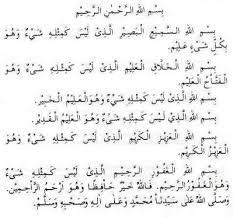 بِسْمِ اللهِ الرَّحْمٰنِ الرَّحِيْمِ
بِسْمِ اللهِ السَّمِيْعِ الْبَصِيْرِ الَّذِىْ لَيْسَ كَمِثْلِهٖ شَىْءٌ وَهُوَ
بِكُلِّ شَىْءٍ عَلِيْمٌ.
بِسْمِ اللهِ الْخَلَّاقِ الْعَلِيْمِ الَّذِىْ لَيْسَ كَمِثْلِهٖ شَىْءٌ وَهُوَ
الْفَتَّاحُ الْعَلِيْمُ.
بِسْمِ اللهِ الَّذِىْ لَيْسَ كَمِثْلِهٖ شَىْءٌ وَهُوَ الْعَلِيْمُ الْخَبِيْرُ.
بِسْمِ اللهِ الَّذِىْ لَيْسَ كَمِثْلِهٖ شَىْءٌ وَهُوَ الْعَلِيْمُ الْقَدِيْرُ.
بِسْمِ اللهِ الْعَزِيْزِ الْكَرِيْمِ الَّذِىْ لَيْسَ كَمِثْلِهٖ شَىْءٌ وَهُوَ
الْعَزِيْزُ الْكَرِيْمُ.
بِسْمِ اللهِ الْغَفُوْرِ الرَّحِيْمِ الَّذِىْ لَيْسَ كَمِثْلِهٖ شَىْءٌ
وَهُوَ الْغَفُوْرُ الرَّحِيْمُ. فَاللهُ خَيْرٌ حَافِظًا وَهُوَ اَرْحَمُ الرَّاحِمِيْنَ.
وَصَلَّى اللهُ عَلٰى سَيِّدِنَا مُحَمَّدٍ وَعَلٰى اٰلِهٖ وَصَحْبِهٖ وَسَلَّمَ.